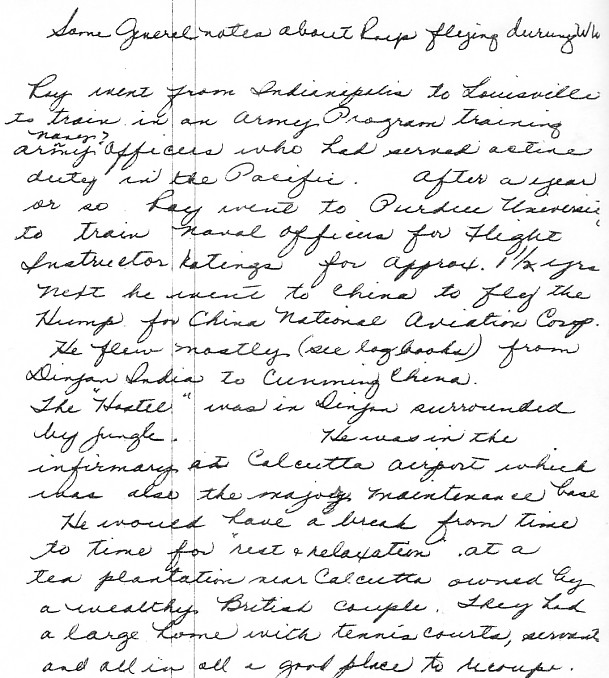 Some General notes about Rays flying during WW
Ray went from Indianapolis to Louisville
to train in an Army Program training
navy?
army officers who had served active
duty in the Pacific. After a year
or so Ray went to Purdue Universi
to train naval officers for Flight
Instructor Ratings for approx. 1 1/2 yrs
Next he went to China to fly the
Hump for China National Aviation Corp.
He flew mostly (see log books) from
Dinjan India to Cunming China.
The "Hostel" was in Dinjan surrounded
by jungle. He was in the
infirmary at Calcutta airport which
was also the major maintenance base
He would have a break from time
to time for "rest & relaxation" at a
tea plantation near Calcutta owned by
a wealthy British couple. They had
a large home with tennis courts, servants
and all in all a good place to recoupe.